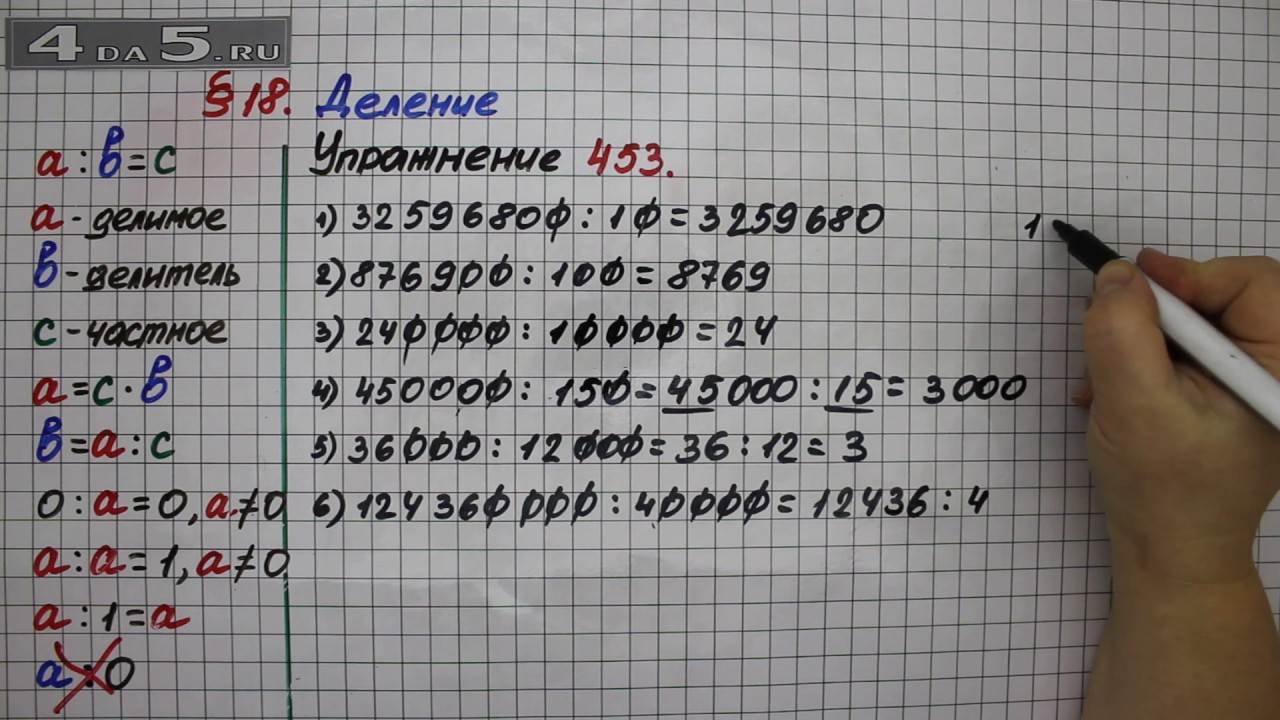 4DA5.RU
§18. Деление
a : в = c
a - делимое
в - делитель
c - частное
a = c · в
в = a : c
0 : a = 0, a ≠ 0
a : a = 1, a ≠ 0
a : 1 = a
a : 0
Упражнение 453.
1) 32596800 : 10 = 3259680
2) 876900 : 100 = 8769
3) 240000 : 10000 = 24
4) 450000 : 150 = 45000 : 15 = 3000
5) 36000 : 12000 = 36 : 12 = 3
6) 124360000 : 40000 = 12436 : 4
1